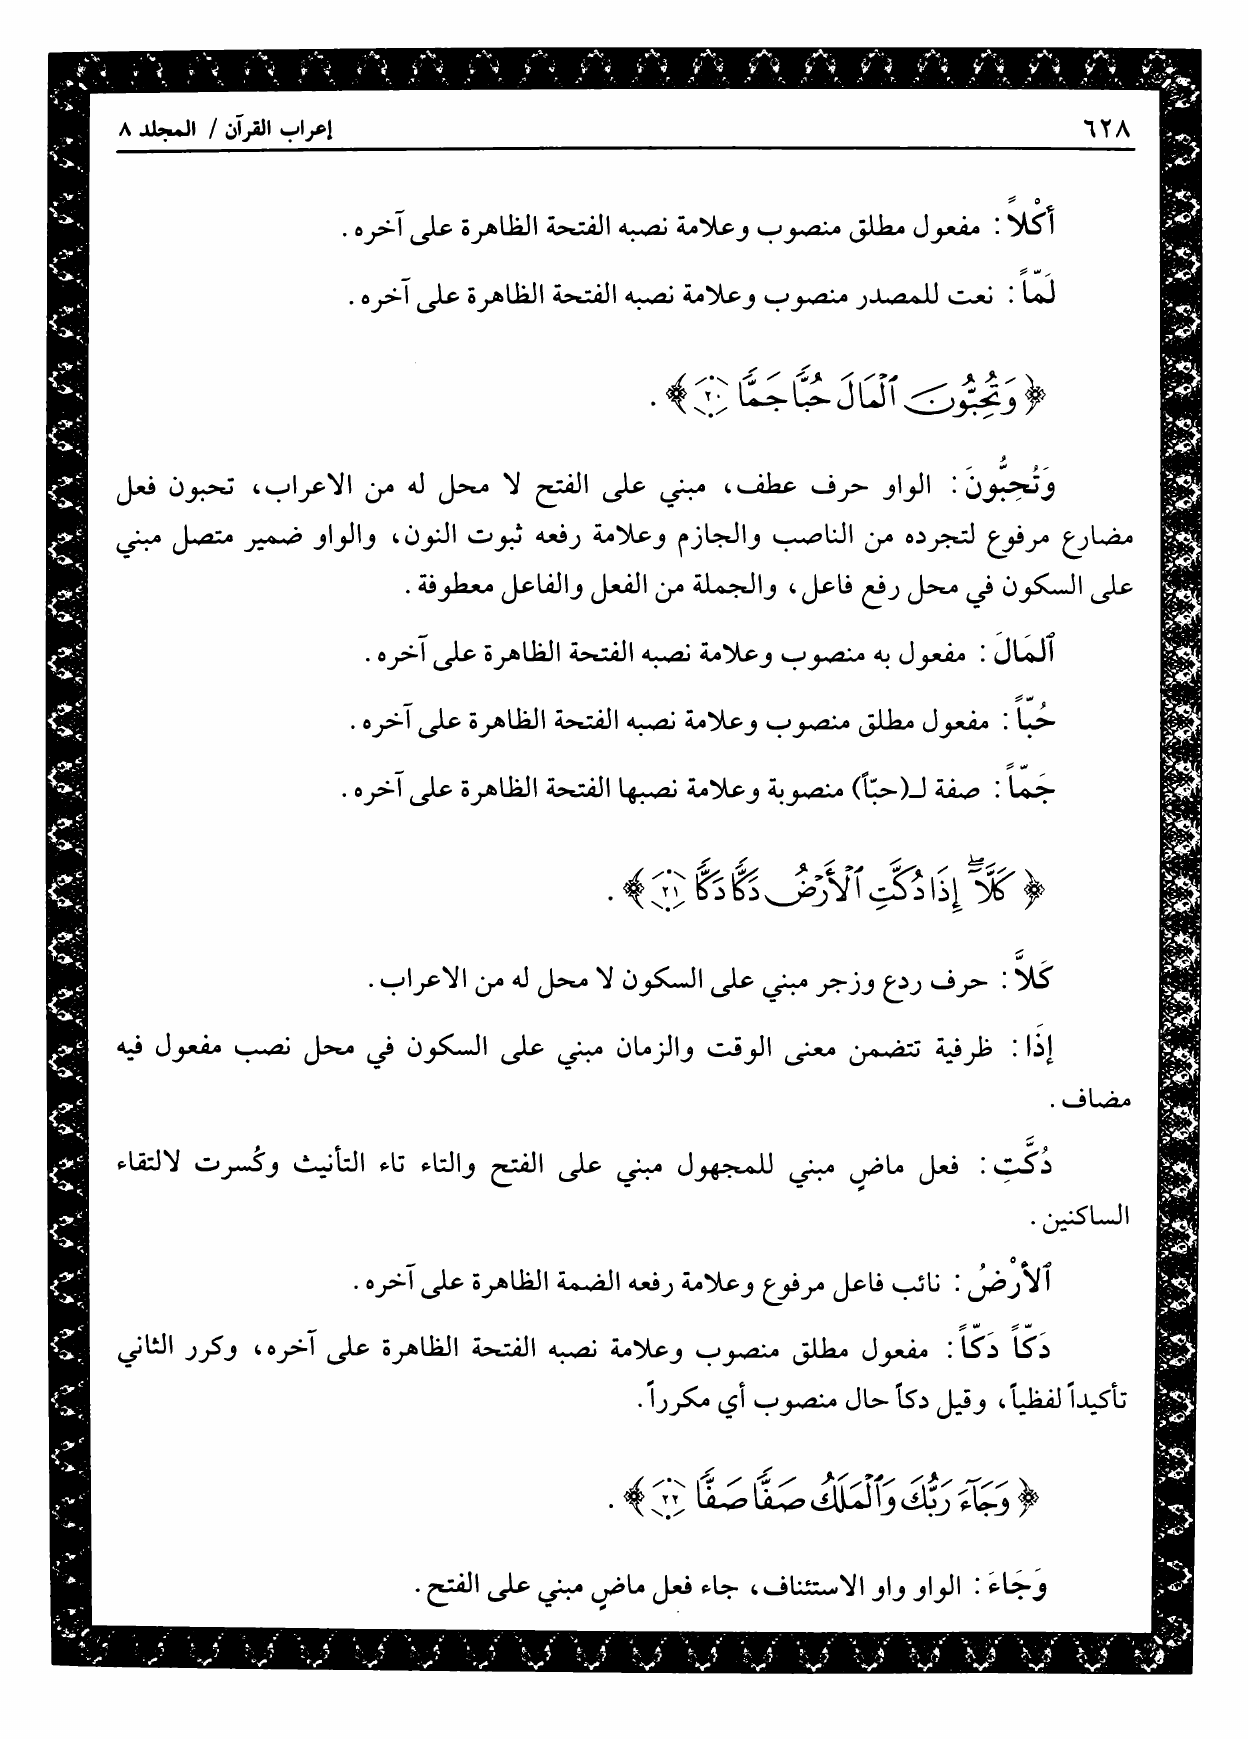 ٦٢٨ إعراب القرآن / المجلد ٨
أَكْلاً: مفعول مطلق منصوب وعلامة نصبه الفتحة الظاهرة على آخره.
لَمّاً: نعت للمصدر منصوب وعلامة نصبه الفتحة الظاهرة على آخره.
﴿ وَتُحِبُّونَ ٱلْمَالَ حُبًّا جَمًّا ٢٠ ﴾.
وَتُحِبُّونَ: الواو حرف عطف، مبني على الفتح لا محل له من الاعراب، تحبون فعل
مضارع مرفوع لتجرده من الناصب والجازم وعلامة رفعه ثبوت النون، والواو ضمير متصل مبني
على السكون في محل رفع فاعل، والجملة من الفعل والفاعل معطوفة.
ٱلمَالَ: مفعول به منصوب وعلامة نصبه الفتحة الظاهرة على آخره.
حُبّاً: مفعول مطلق منصوب وعلامة نصبه الفتحة الظاهرة على آخره.
جَمّاً: صفة لـ(حبّاً) منصوبة وعلامة نصبها الفتحة الظاهرة على آخره.
﴿ كَلَّآۖ إِذَا دُكَّتِ ٱلْأَرْضُ دَكًّا دَكًّا ٢١ ﴾.
كَلاَّ: حرف ردع وزجر مبني على السكون لا محل له من الاعراب.
إذَا: ظرفية تتضمن معنى الوقت والزمان مبني على السكون في محل نصب مفعول فيه
مضاف.
دُكَّتِ: فعل ماضٍ مبني للمجهول مبني على الفتح والتاء تاء التأنيث وكُسرت لالتقاء
الساكنين.
ٱلأَرْضُ: نائب فاعل مرفوع وعلامة رفعه الضمة الظاهرة على آخره.
دَكّاً دَكّاً: مفعول مطلق منصوب وعلامة نصبه الفتحة الظاهرة على آخره، وكرر الثاني
تأكيداً لفظياً، وقيل دكاً حال منصوب أي مكرراً.
﴿ وَجَآءَ رَبُّكَ وَٱلْمَلَكُ صَفًّا صَفًّا ٢٢ ﴾.
وَجَاءَ: الواو واو الاستئناف، جاء فعل ماضٍ مبني على الفتح.